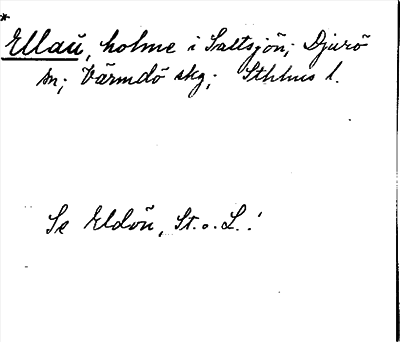 *
Ellaü, holme i Saltsjön; Djurö
sn; Värmdö skg; Sthlms l.
Se Eldön, St. o. L.!